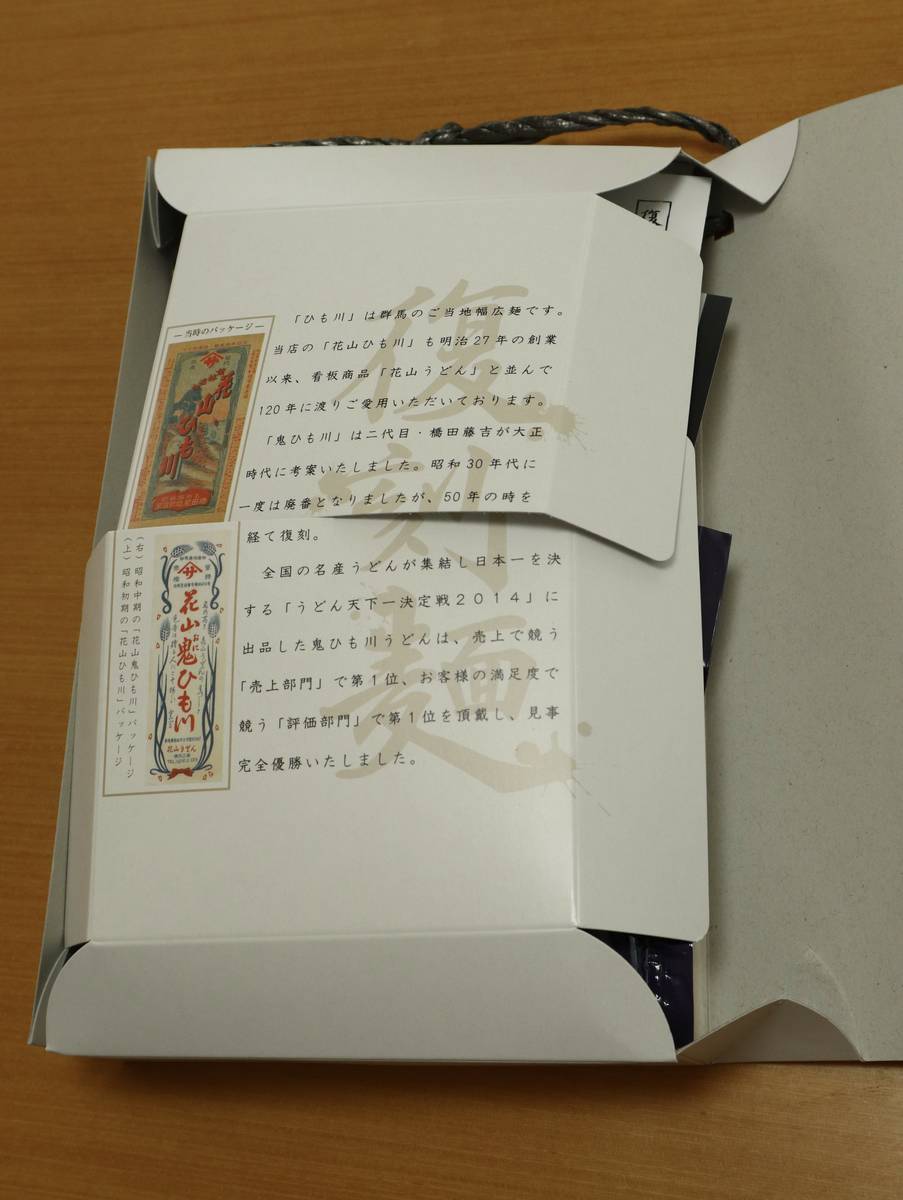 復
復刻麺
「ひも川」は群馬のご当地幅広麺です。
当店の「花山ひも川」も明治27年の創業
以来、看板商品「花山うどん」と並んで
120年に渡りご愛用いただいております。
「鬼ひも川」は二代目・橋田藤吉が大正
時代に考案いたしました。昭和30年代に
一度は廃番となりましたが、50年の時を
経て復刻。
全国の名産うどんが集結し日本一を決
する「うどん天下一決定戦2014」に
出品した鬼ひも川うどんは、売上で競う
「売上部門」で第1位、お客様の満足度で
競う「評価部門」で第1位を頂戴し、見事
完全優勝いたしました。
―当時のパッケージ―
花山ひも川
花山鬼ひも川
おに
花山うどん
(右)昭和中期の「花山鬼ひも川」パッケージ
(上)昭和初期の「花山ひも川」パッケージ